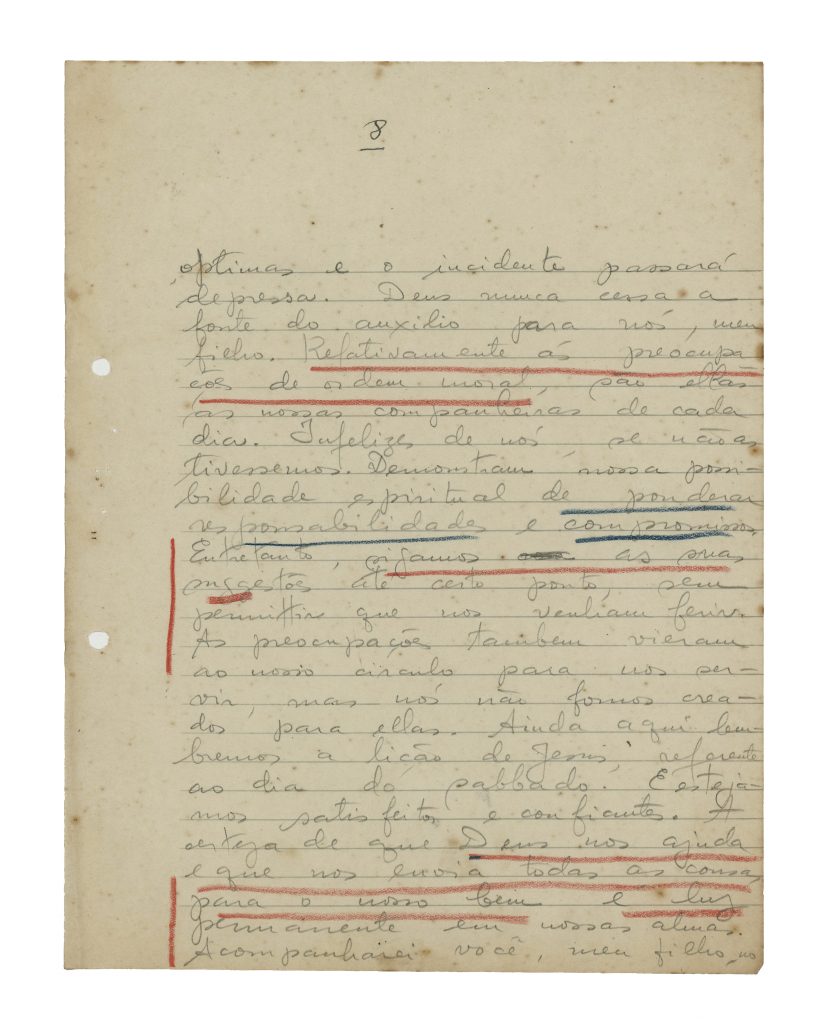 8
optimas e o incidente passará
depressa. Deus nunca cessa a
fonte do auxilio para nós, meu
filho. Relativamente ás preoccupa
ções de ordem moral, são ellas
as nossas companheiras de cada
dia. Infelizes de nós se não as
tivessemos. Demonstram nossa possi-
bilidade espiritual de ponderar
responsabilidades e compromissos.
Entretanto, sigamos as suas
suggestões até certo ponto, sem
permittir que nos venham ferir.
As preocupações tambem vieram
ao nosso circulo para nos ser-
vir, mas nós não fomos crea-
dos para ellas. Ainda aqui lem-
bremos a lição de Jesus, referente
ao dia do sabbado. E esteja-
mos satisfeitos e confiantes. A
certeza de que Deus nos ajuda
e que nos envia todas as cousas
para o nosso bem é luz
permanente em nossas almas.
Acompanharei você, meu filho, no